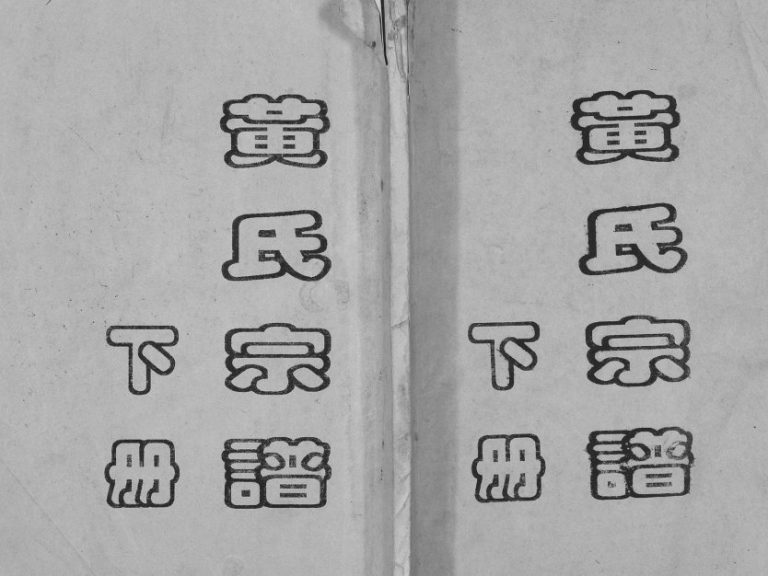 黃氏宗譜
下册
黃氏宗譜
下册